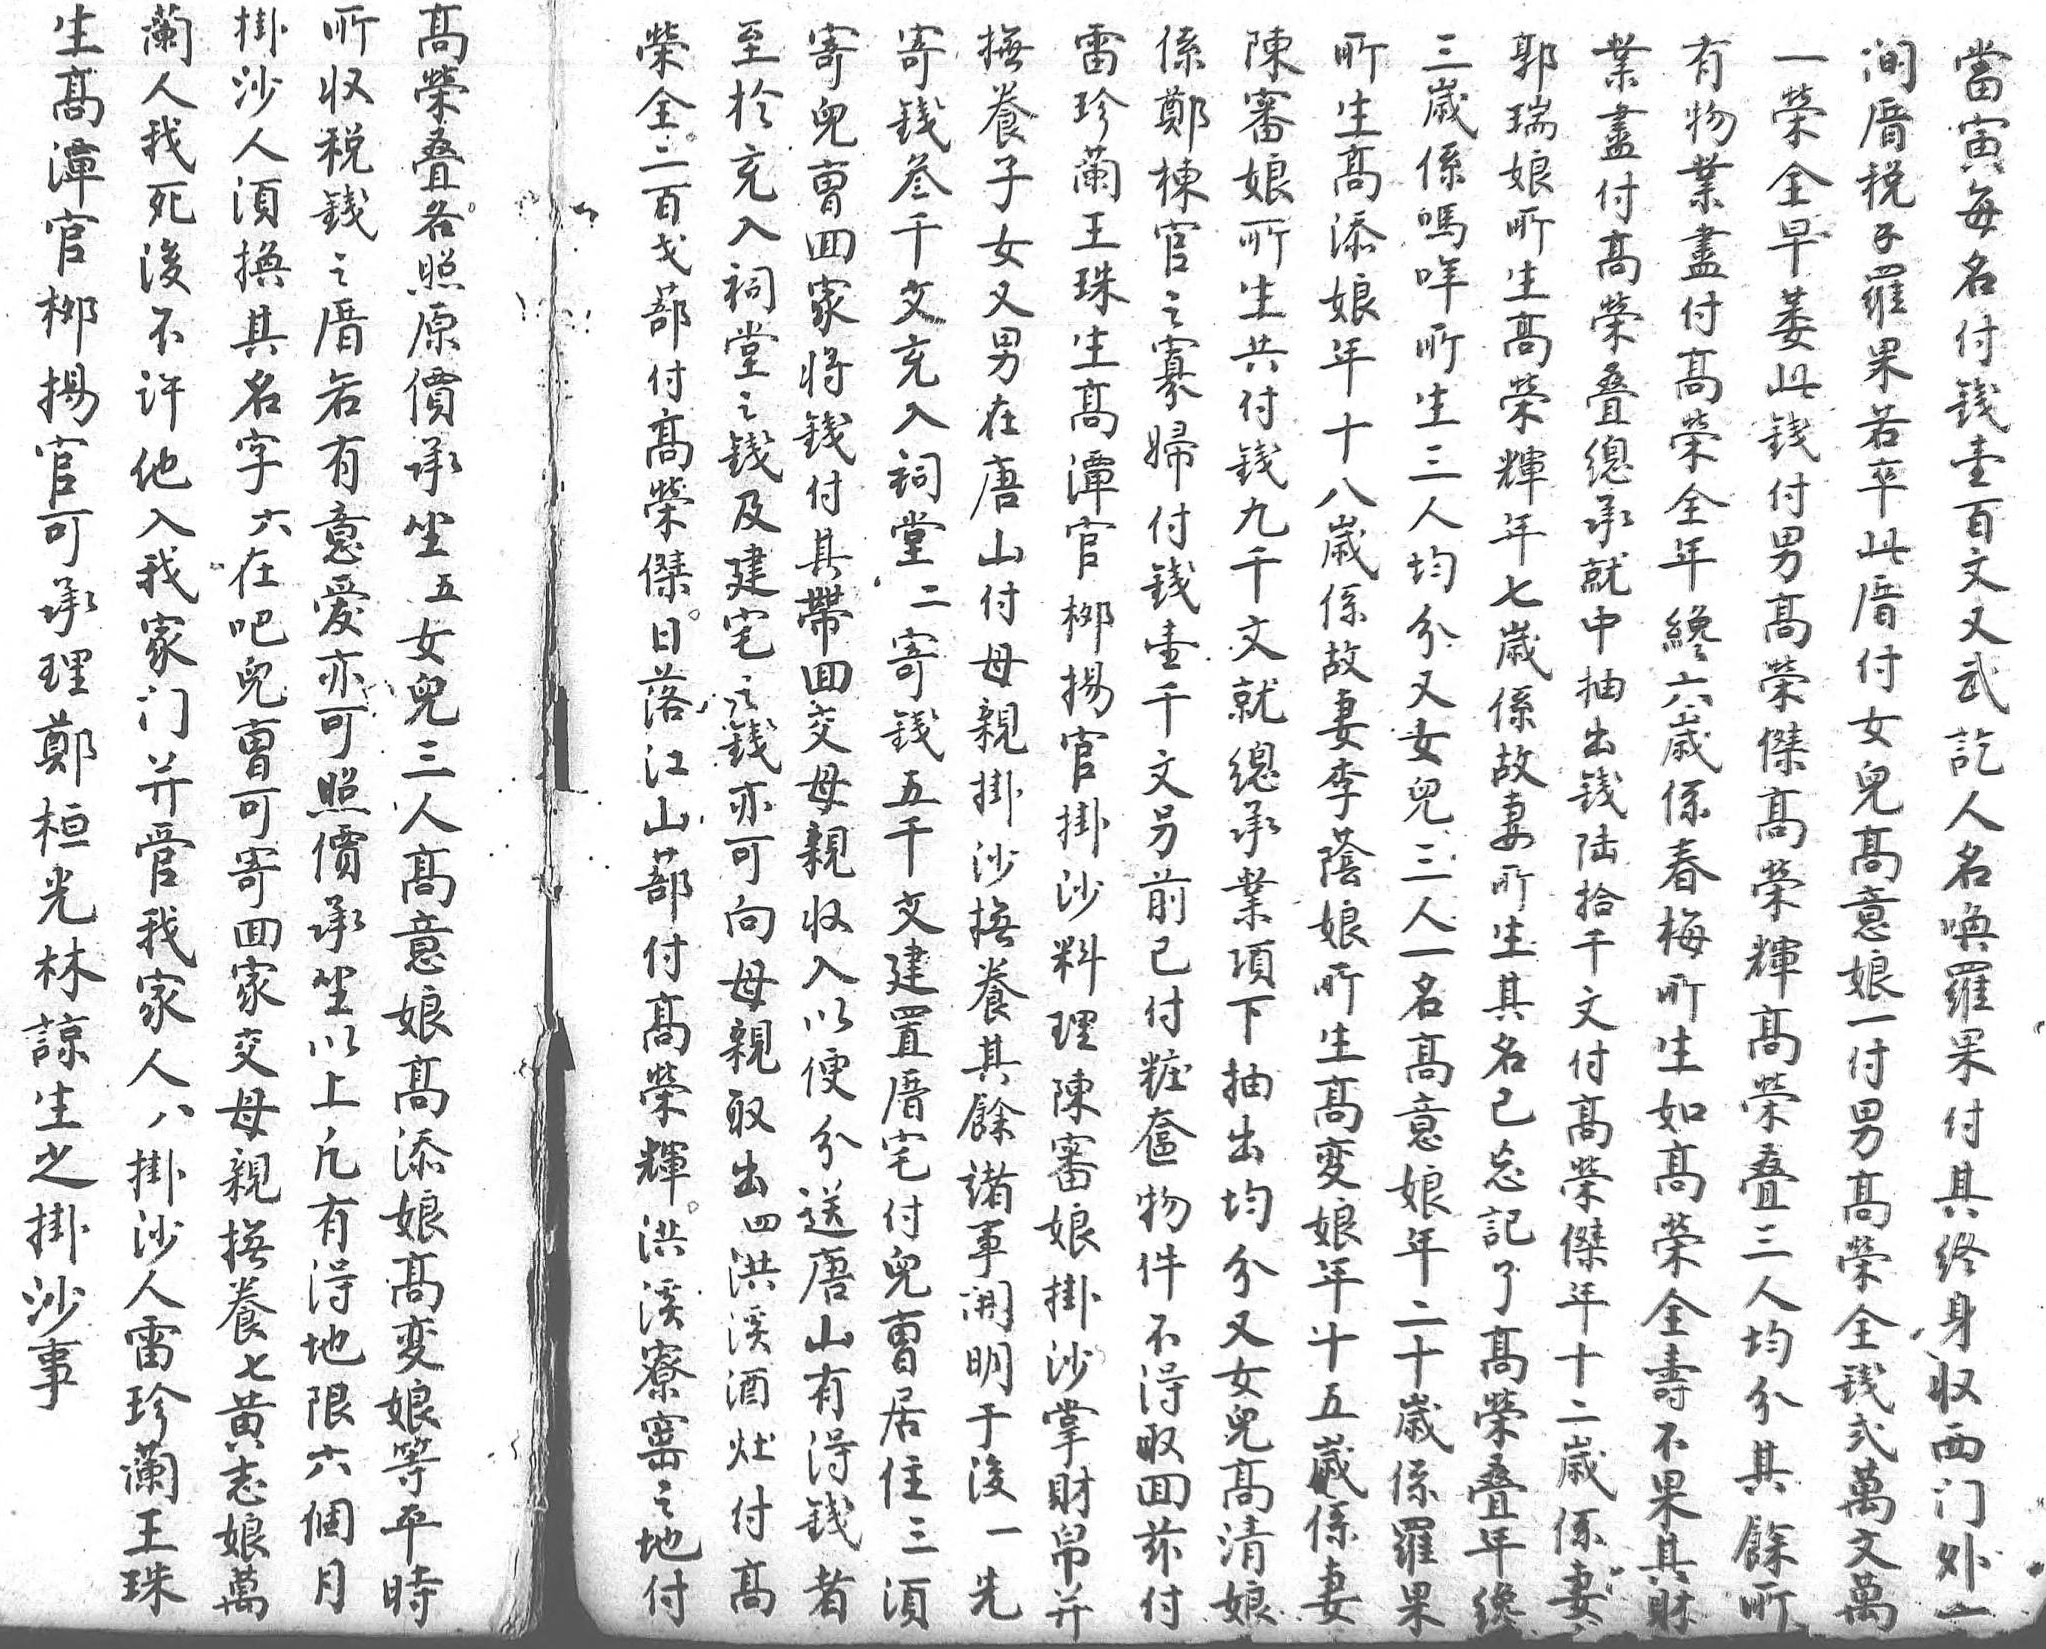 當寅每名付錢壹百文又武訖人名喚羅果付其終身收西门外一
间厝税子羅果若卒此厝付女兒高意娘一付男高榮全錢弍萬文萬
一榮全早萎此錢付男高榮傑高榮輝高榮叠三人均分其餘所
有物業盡付高榮全年纔六歲係春梅所生如高榮全壽不果其財
業盡付高榮叠總承就中抽出錢陆拾千文付高榮傑年十二歲係妻
郭瑞娘所生高榮輝年七歲係故妻所生其名已忘記了高榮叠年纔
三歲係嗎哖所生三人均分又女兒三人一名高意娘年二十歲係羅果
所生高添娘年十八歲係故妻李蔭娘所生高変娘年十五歲係妻
陳審娘所生共付錢九千文就總承業項下抽出均分又女兒高清娘
係鄭棟官之寡婦付錢壹千文另前已付粧奩物件不得取回茲付
雷珍蘭王珠生高潭官梛揚官掛沙料理陳審娘掛沙掌財帛并
撫養子女又男在唐山付母親掛沙撫養其餘諸事開明于後一先
寄錢叁千文充入祠堂二寄錢五千文建置厝宅付兒曹居住三湏
寄兒曹回家将錢付其帶回交母親收入以便分送唐山有得錢者
至於充入祠堂之錢及建宅之錢亦可向母親取出四洪溪酒灶付高
榮全二百戈蔀付高榮傑日落江山蔀付高榮輝洪溪寮窰之地付
高榮叠各照原價承坐五女兒三人高意娘高添娘高変娘等平時
所收税錢之厝若有意愛亦可照價承坐以上凢有得地限六個月
掛沙人湏換其名字六在吧兒曹可寄回家交母親撫養七黄志娘萬
蘭人我死後不许他入我家门并管我家人八掛沙人雷珍蘭王珠
生高潭官梛揚官可承理鄭桓光林諒生之掛沙事